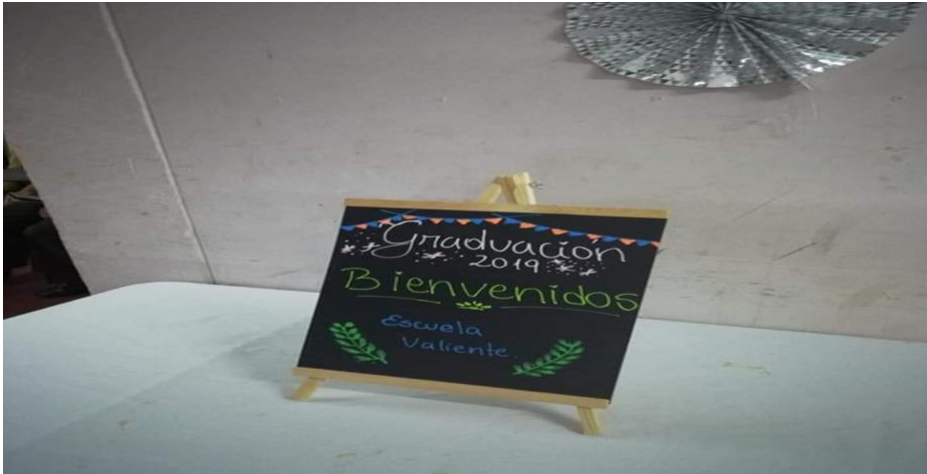 Graduación
2019
Bienvenidos
Escuela
Valiente.